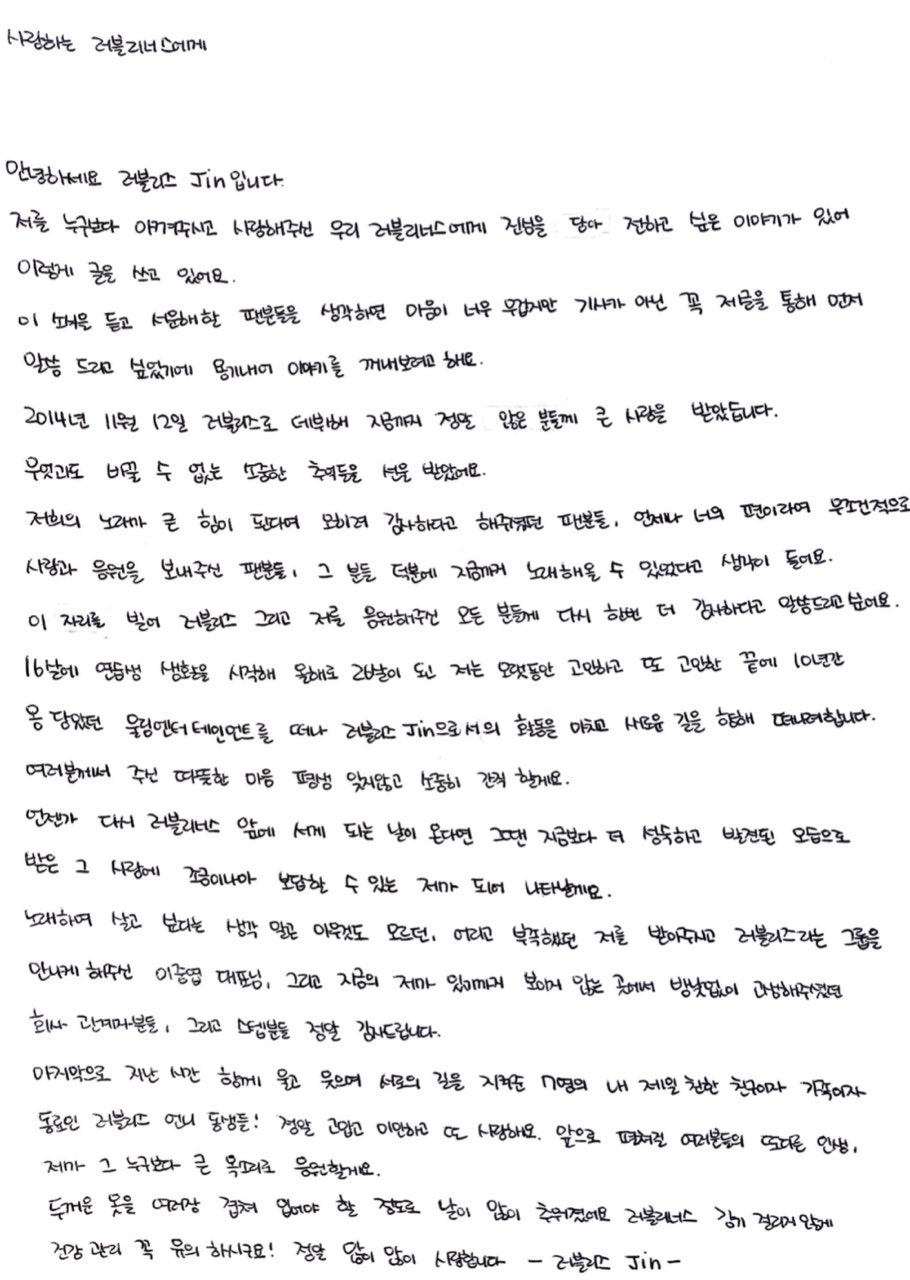 사랑하는 러블리너스에게
안녕하세요 러블리즈 Jin입니다.
저를 누구보다 아껴주시고 사랑해주신 우리 러블리너스에게 진심을 담아 전하고 싶은 이야기가 있어
이렇게 글을 쓰고 있어요.
이 소식을 듣고 서운해할 팬분들을 생각하면 마음이 너무 무겁지만 기사가 아닌 꼭 제글을 통해 먼저
말씀 드리고 싶었기에 용기내어 이야기를 꺼내보려고 해요.
2014년 11월 12일 러블리즈로 데뷔해 지금까지 정말 많은 분들께 큰 사랑을 받았습니다.
무엇과도 바꿀 수 없는 소중한 추억들을 선물 받았어요.
저희의 노래가 큰 힘이 된다며 오히려 감사하다고 해주셨던 팬분들, 언제나 너의 편이라며 무조건적으로
사랑과 응원을 보내주신 팬분들, 그 분들 덕분에 지금까지 노래해올 수 있었다고 생각이 들어요.
이 자리를 빌어 러블리즈 그리고 저를 응원해주신 모든 분들께 다시 한번 더 감사하다고 말씀드리고싶어요.
16살에 연습생 생활을 시작해 올해로 26살이 된 저는 오랫동안 고민하고 또 고민한 끝에 10년간
몸 담았던 울림엔터테인먼트를 떠나 러블리즈 Jin으로서의 활동을 마치고 새로운 길을 향해 떠나려합니다.
여러분께서 주신 따뜻한 마음 평생 잊지않고 소중히 간직 할게요.
언젠가 다시 러블리너스 앞에 서게 되는 날이 온다면 그땐 지금보다 더 성숙하고 발전된 모습으로
받은 그 사랑에 조금이나마 보답할 수 있는 제가 되어 나타날게요.
노래하며 살고 싶다는 생각 말곤 아무것도 모르던, 어리고 부족했던 저를 받아주시고 러블리즈라는 그룹을
만나게 해주신 이중엽 대표님, 그리고 지금의 제가 있기까지 보이지 않는 곳에서 밤낮없이 고생해주셨던
회사 관계자분들, 그리고 스텝분들 정말 감사드립니다.
마지막으로 지난 시간 함께 울고 웃으며 서로의 길을 지켜준 7명의 내 제일 친한 친구이자 가족이자
동료인 러블리즈 언니 동생들! 정말 고맙고 미안하고 또 사랑해요. 앞으로 펼쳐질 여러분들의 또다른 인생,
제가 그 누구보다 큰 목소리로 응원할게요.
두꺼운 옷을 여러장 겹쳐 입어야 할 정도로 날이 많이 추워졌어요 러블리너스 감기 걸리지 않게
건강 관리 꼭 유의 하시구요! 정말 많이 많이 사랑합니다 - 러블리즈 Jin -